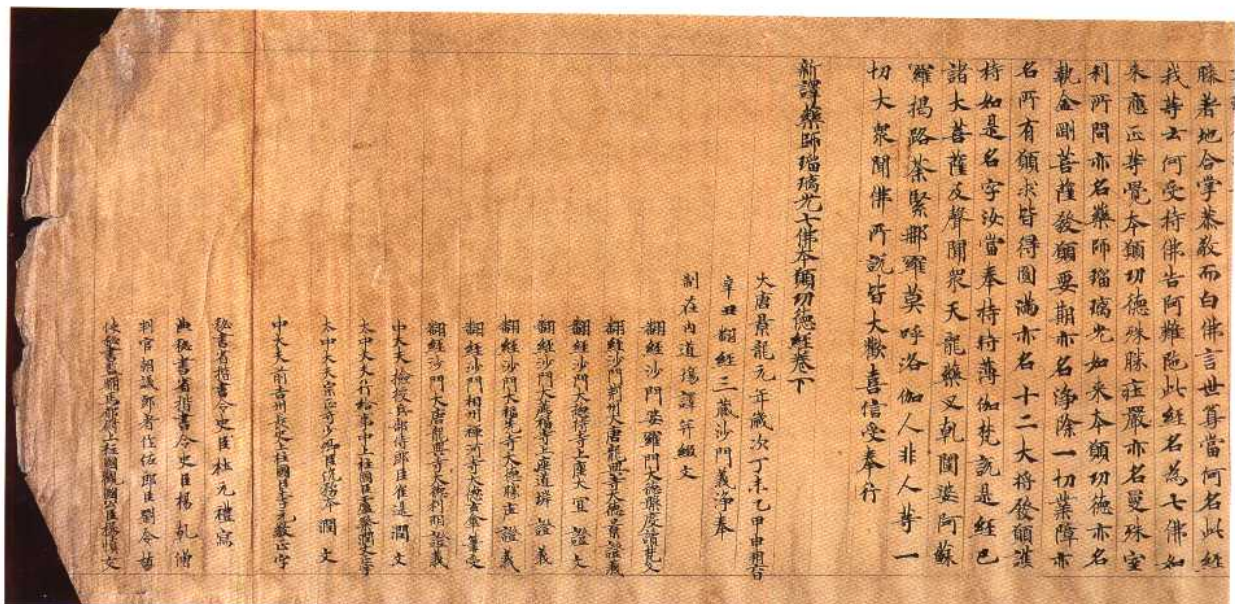 膝著地合掌恭敬而白佛言世尊當何名此經
我等云何受持佛告阿難陀此經名為七佛如
來應正等覺本願功德殊勝莊嚴亦名曼殊室
利所問亦名藥師瑠璃光如來本願功德亦名
執金剛菩薩發願要期亦名淨除一切業障亦
名所有願求皆得圓滿亦名十二大將發願護
持如是名字汝當奉持時薄伽梵說是經已
諸大菩薩及聲聞眾天龍藥叉乹闥婆阿蘇
羅揭路荼緊那羅莫呼洛伽人非人等一
切大眾聞佛所說皆大歡喜信受奉行
新譯藥師瑠璃光七佛本願功德經卷下
大唐景龍元年歲次丁未
辛丑翻經三藏沙門義淨奉
制在內道場譯并綴文
翻經沙門婆羅門大德 讀梵文
翻經沙門 大唐龍興寺大德 證義
翻經沙門大 寺上座大宜 證文
翻經沙門大薦福寺上座道 證義
翻經沙門大福先寺大德勝莊 證義
翻經沙門相州禪河寺大德玄傘筆受
翻經沙門大唐龍興寺大德利明證義
中大夫檢校兵部侍郎臣崔湜潤文
太中大夫行給事中上柱國臣盧粲潤文正字
太中大夫 潤文
中大夫前吉州長史上柱國 正字
秘書省楷書令史臣杜元禮寫
典秘書省楷書令史臣楊乹僧
判官朝議郎著作佐郎臣劉令
使秘書監駙馬都尉上柱國 國公臣楊慎交